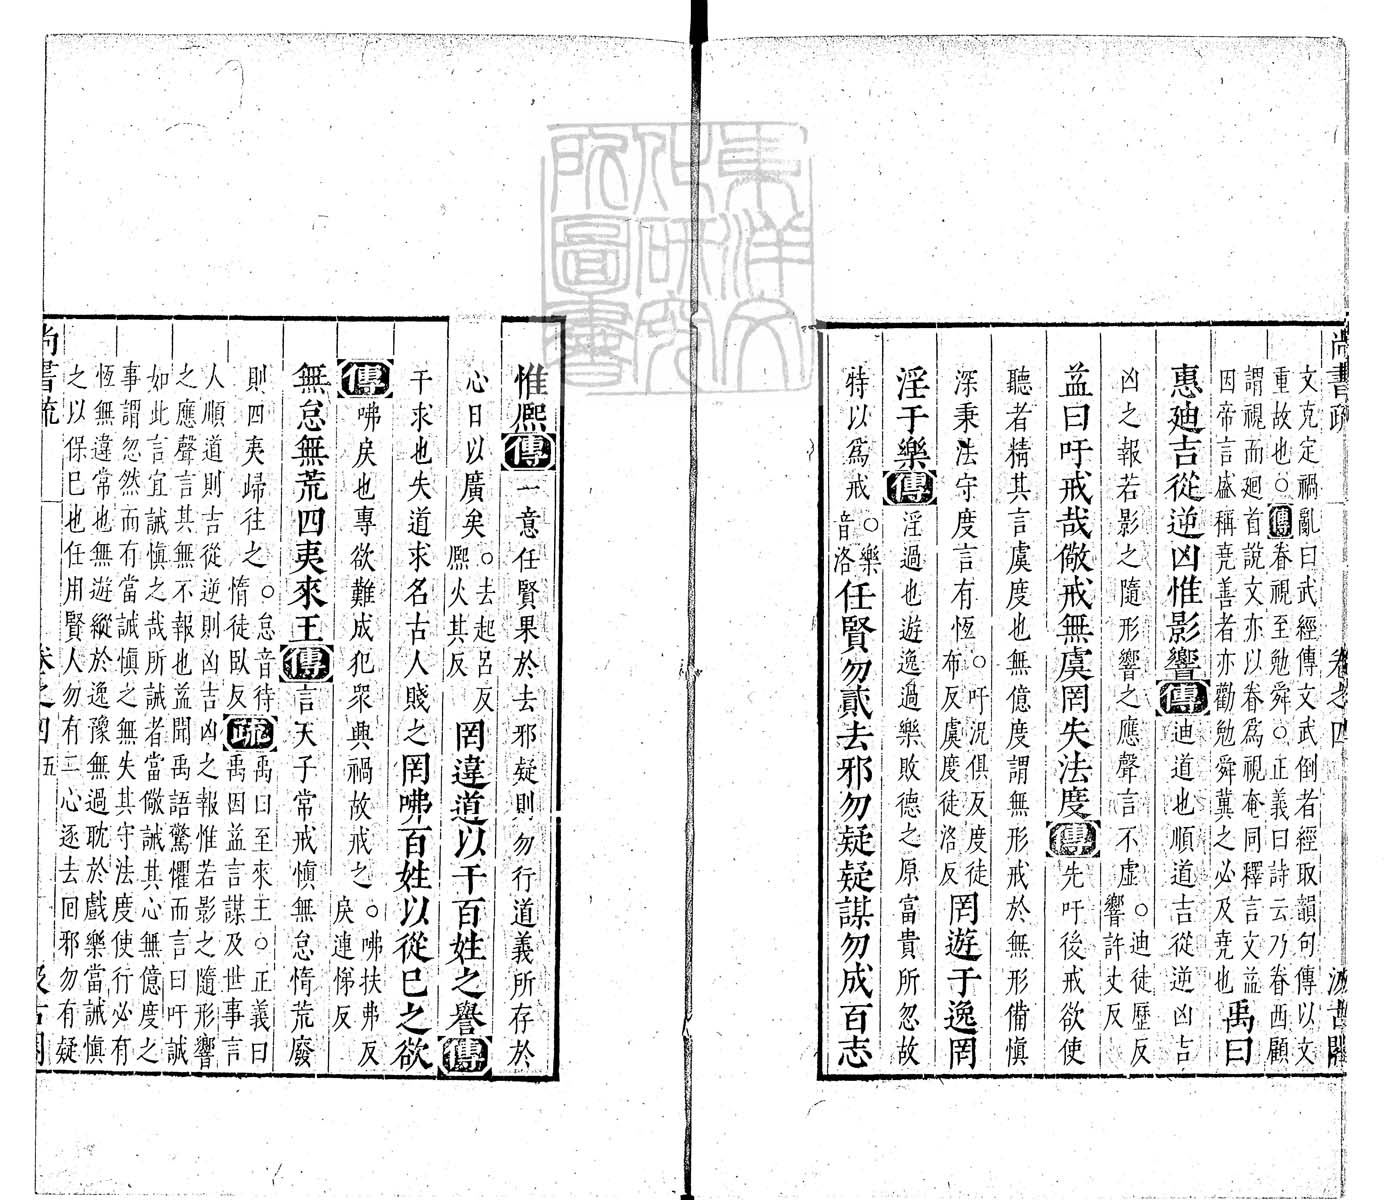 尚書疏 卷之四 汲古閣
文克定禍亂曰武經傳文武倒者經取韻句傳以文
重故也○傳眷視至勉舜○正義曰詩云乃眷西顧
謂視而廻首說文亦以眷爲視奄同釋言文益
因帝言盛稱堯善者亦勸勉舜冀之必及堯也
禹曰
惠廸吉從逆凶惟影響傳廸道也順道吉從逆凶吉
凶之報若影之隨形響之應聲言不虛○迪徒歷反
響許丈反
益曰吁戒哉儆戒無虞罔失法度傳先吁後戒欲使
聽者精其言虞度也無億度謂無形戒於無形備愼
深秉法守度言有恆○吁況俱反度徒
布反虞度徒洛反
罔遊于逸罔
淫于樂傳淫過也遊逸過樂敗德之原富貴所忽故
特以爲戒○樂
音洛
任賢勿貳去邪勿疑疑謀勿成百志
惟熈傳一意任賢果於去邪疑則勿行道義所存於
心日以廣矣○去起呂反
熈火其反
罔違道以干百姓之譽傳
干求也失道求名古人賤之罔咈百姓以從己之欲
傳咈戾也專欲難成犯眾興禍故戒之○咈扶弗反
戾連悌反
無怠無荒四夷來王傳言天子常戒愼無怠惰荒廢
則四夷歸往之○怠音待
惰徒臥反
疏禹曰至來王○正義曰
禹因益言謀及世事言
人順道則吉從逆則凶吉凶之報惟若影之隨形響
之應聲言其無不報也益聞禹語驚懼而言曰吁誡
如此言宜誡愼之哉所誡者當儆誡其心無億度之
事謂忽然而有當誡愼之無失其守法度使行必有
恆無違常也無遊縱於逸豫無過耽於戲樂當誡愼
之以保己也任用賢人勿有二心逐去回邪勿有疑
尚書疏 卷之四 五 汲古閣
東洋文化研究所圖書